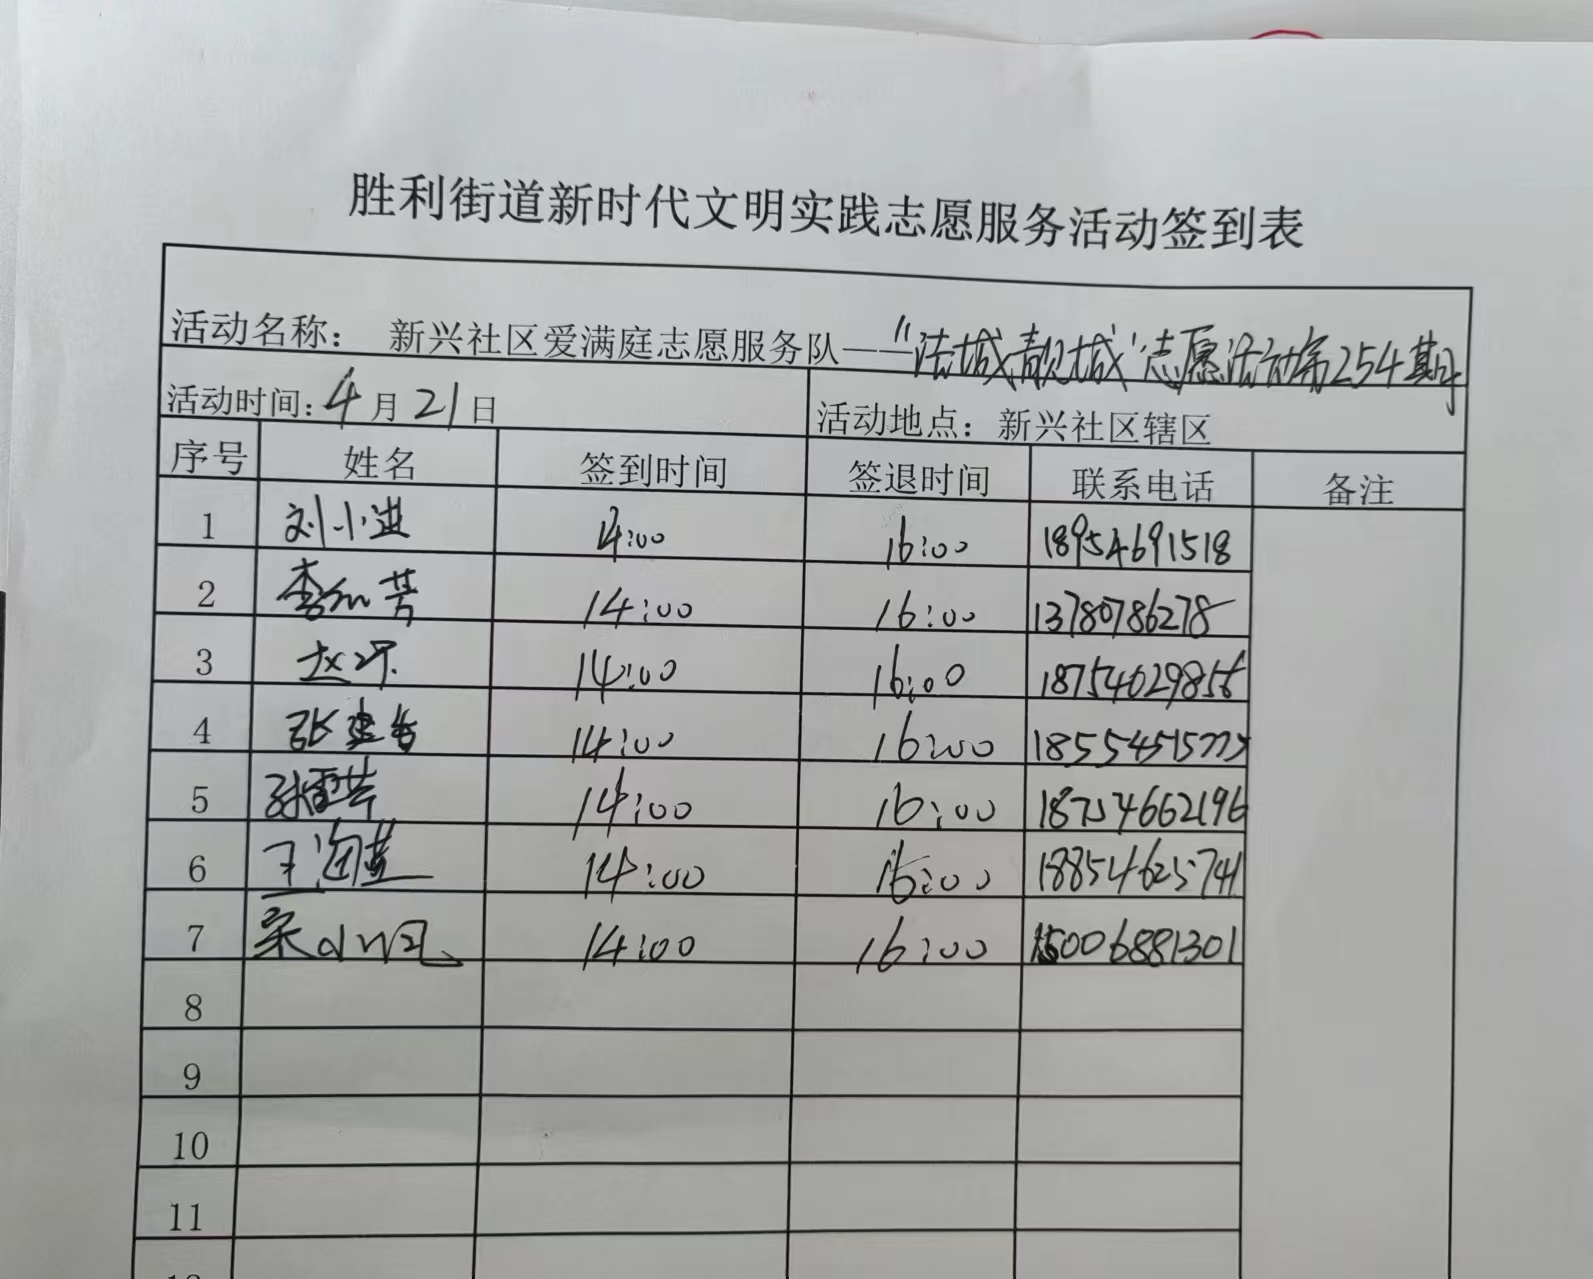 胜利街道新时代文明实践志愿服务活动签到表
活动名称： 新兴社区爱满庭志愿服务队——“洁城靓城”志愿活动第254期
活动时间：4月21日 活动地点：新兴社区辖区
序号 姓名 签到时间 签退时间 联系电话 备注
1 刘小进 14:00 16:00 18954691518
2 李 芳 14:00 16:00 13780786278
3 赵 14:00 16:00
4 张 14:00 16:00
5 孙 14:00 16:00 18754662196
6 王海燕 14:00 16:00 18854625741
7 宋小凤 14:00 16:00 15006881301
8
9
10
11